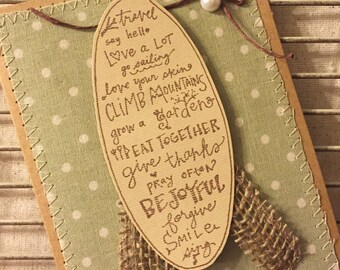 travel
say hello
LOVE A LOT
go sailing
love your skin
CLIMB MOUNTAINS
grow a Garden
EAT TOGETHER
give thanks
PRAY OFTEN
BE JOYFUL
forgive
SMILE
sing